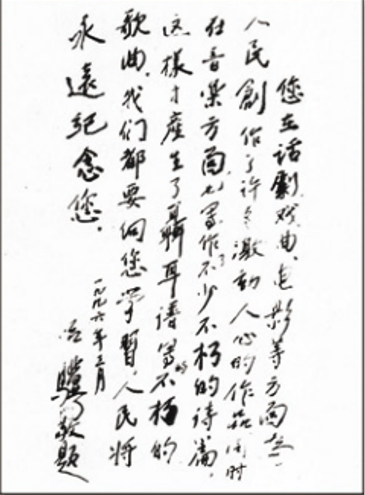 您在话劇、戏曲、电影等方面为
人民創作了许多激動人心的作品同时
在音樂方面,也写作了不少不朽的诗篇,
这樣才產生了聶耳谱写的不朽的
歌曲,我们都要向您学習,人民将
永遠纪念您。
一九九六年三月
吕驥敬题